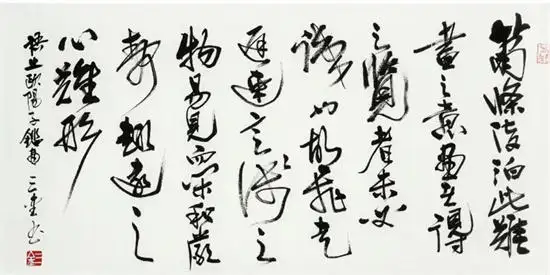 蕭條淡泊此難
畫之意畫者得
之覽者未必
識也故飛走
遲速意淺之
物易見而閑和嚴
靜趣遠之
心難形
歐陽子鑑畫